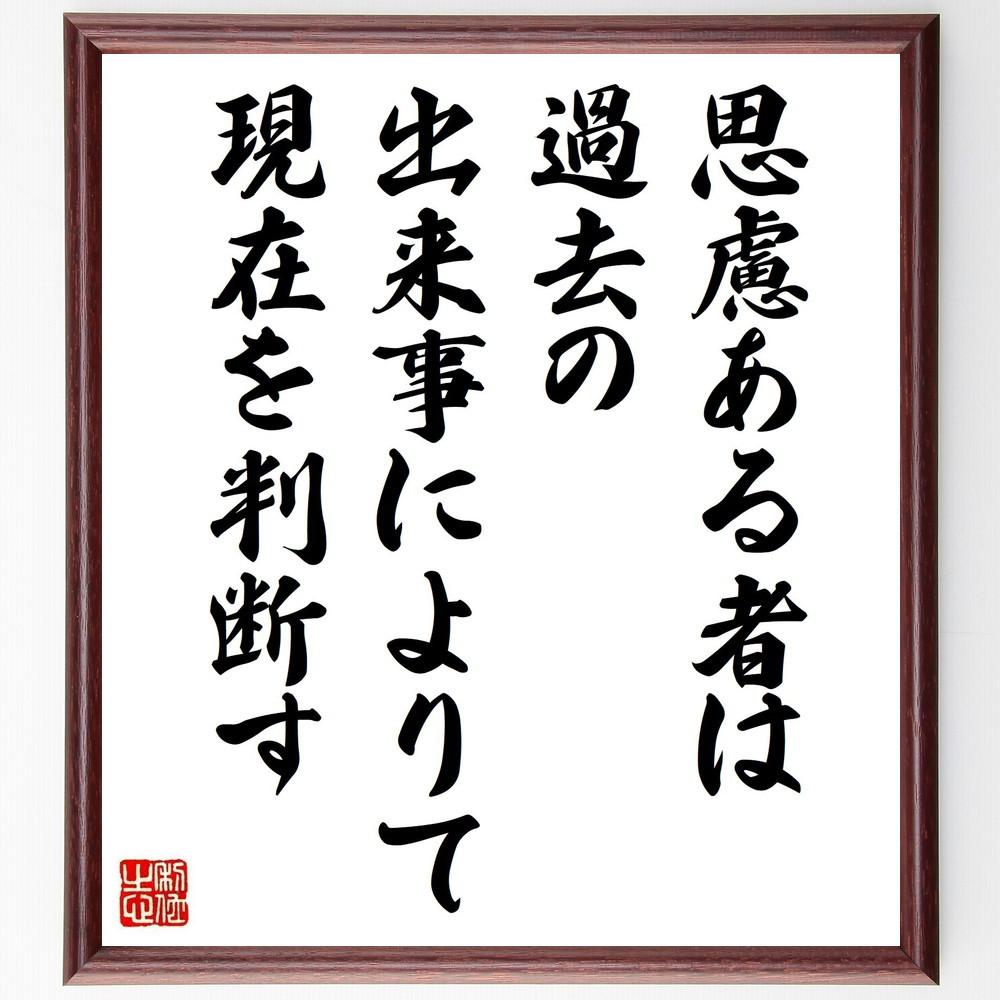 思慮ある者は
過去の
出来事によりて
現在を判断す